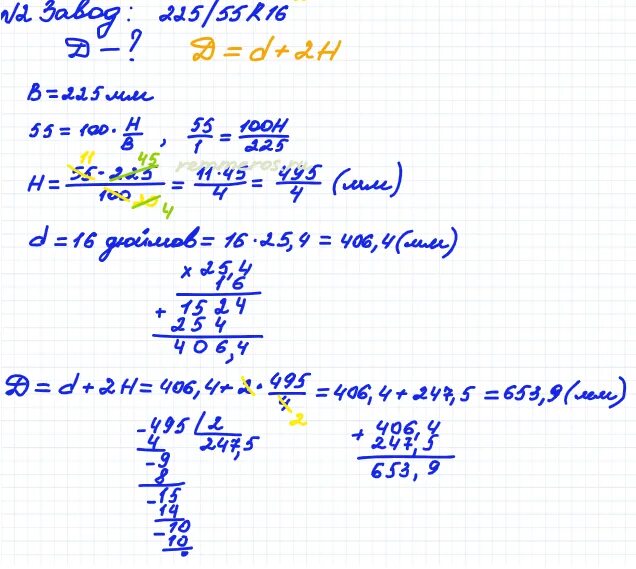 №2 Завод: 225/55R16
D - ? D = d + 2H
B = 225 мм
55 = 100 · H/B , 55/1 = 100H/225
H = 55 · 225/100 = 11 · 45/4 = 495/4 (мм)
11 45 20 4
remmeros.ru
d = 16 дюймов = 16 · 25,4 = 406,4 (мм)
× 25,4
16
+ 1524
254
406,4
D = d + 2H = 406,4 + 2 · 495/4 = 406,4 + 247,5 = 653,9 (мм)
2
- 495 | 2
4 247,5
- 9
8
- 15
14
- 10
10
+ 406,4
247,5
653,9